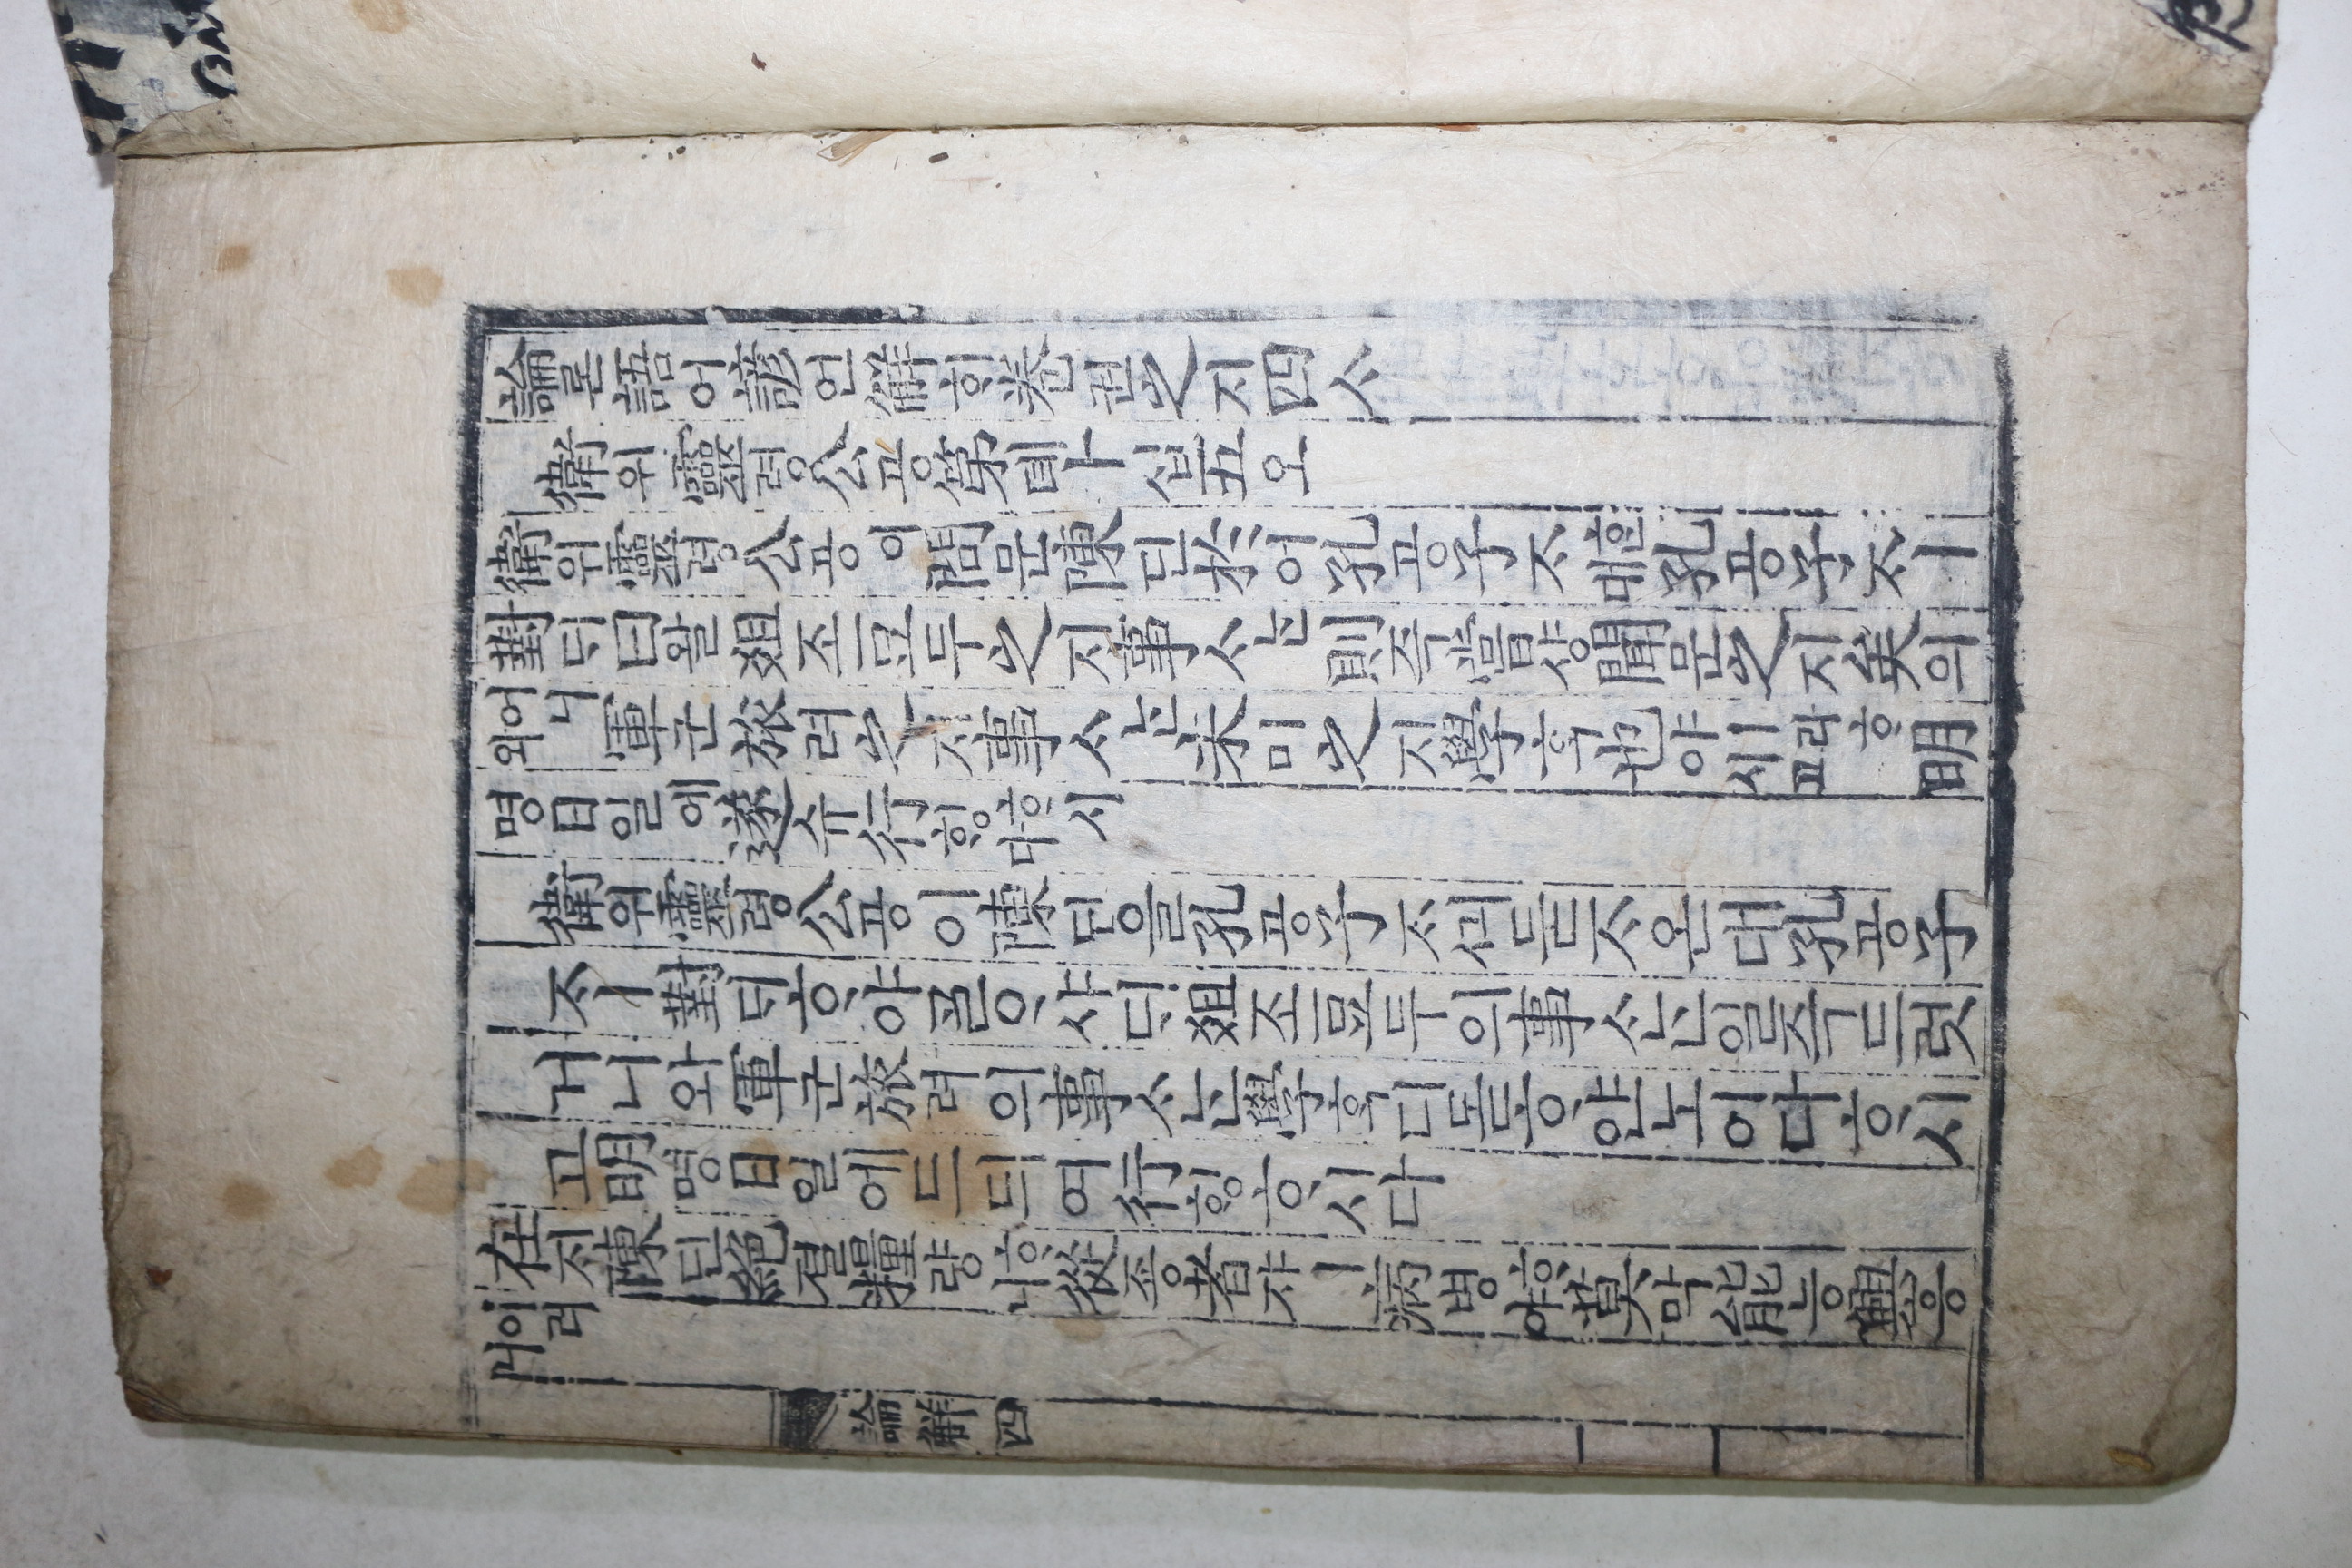 論론語어諺언解ᄒᆡ卷권之지四ᄉᆞ
衛위靈령公공第뎨十십五오
衛위靈령公공이問문陳딘於어孔공子ᄌᆞᄒᆞᆫ대孔공子ᄌᆞㅣ
對ᄃᆡ曰왈俎조豆두之지事ᄉᆞᄂᆞᆫ則즉嘗샹聞문之지矣의
어니와軍군旅려之지事ᄉᆞᄂᆞᆫ未미之지學ᄒᆞᆨ也야ㅣ라ᄒᆞ시고明
명日일에遂슈行ᄒᆡᆼᄒᆞ시다
衛위靈령公공이陳딘을孔공子ᄌᆞᄭᅴ듣ᄌᆞ온대孔공子
ᄌᆞㅣ對ᄃᆡᄒᆞ야ᄀᆞᆯᄋᆞ샤ᄃᆡ俎조豆두의事ᄉᆞᄂᆞᆫ일즉드럿
거니와軍군旅려의事ᄉᆞᄂᆞᆫ學ᄒᆞᆨ디몯ᄒᆞ얀노이다ᄒᆞ시
고明명日일에드듸여行ᄒᆡᆼᄒᆞ시다
在ᄌᆡ陳딘絶졀糧량ᄒᆞ니從죵者쟈ㅣ病병ᄒᆞ야莫막能능興흥
이러니
論解 四